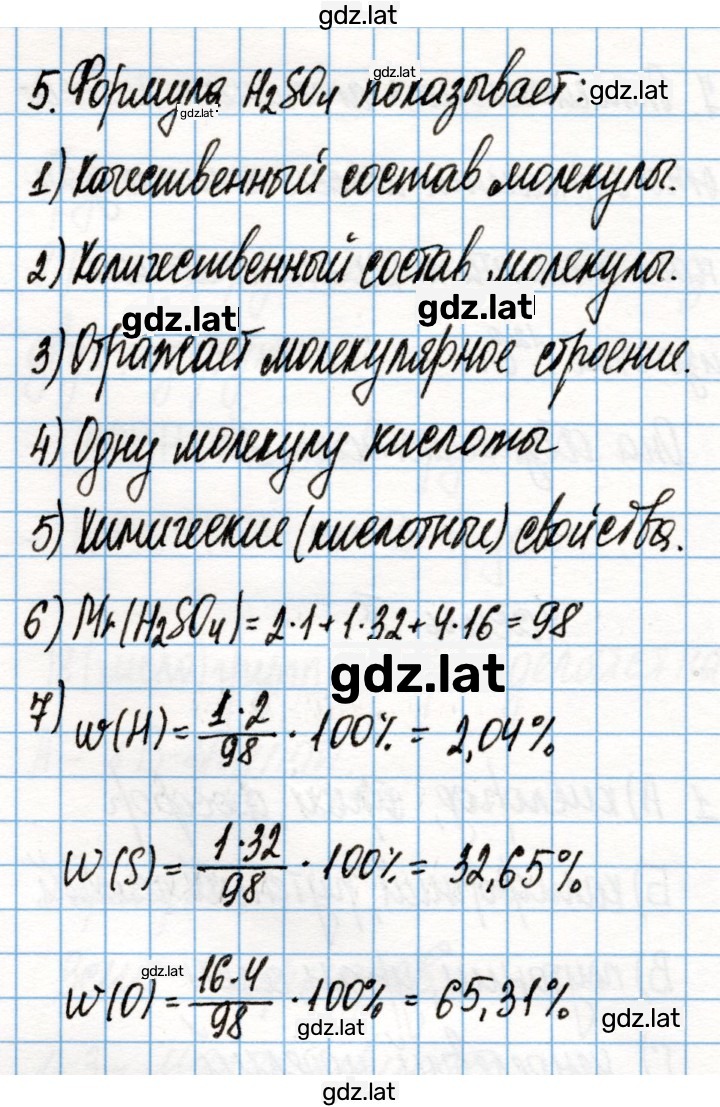 gdz.lat
5. Формула H₂SO₄ показывает:
gdz.lat
gdz.lat
gdz.lat
1) Качественный состав молекулы.
2) Количественный состав молекулы.
gdz.lat
gdz.lat
3) Отражает молекулярное строение.
4) Одну молекулу кислоты
5) Химические (кислотные) свойства.
6) Mr(H₂SO₄) = 2·1+1·32+4·16 = 98
gdz.lat
7) w(H) = 1·2/98 · 100% = 2,04%
w(S) = 1·32/98 · 100% = 32,65%
gdz.lat
w(O) = 16·4/98 · 100% = 65,31%
gdz.lat
gdz.lat
gdz.lat